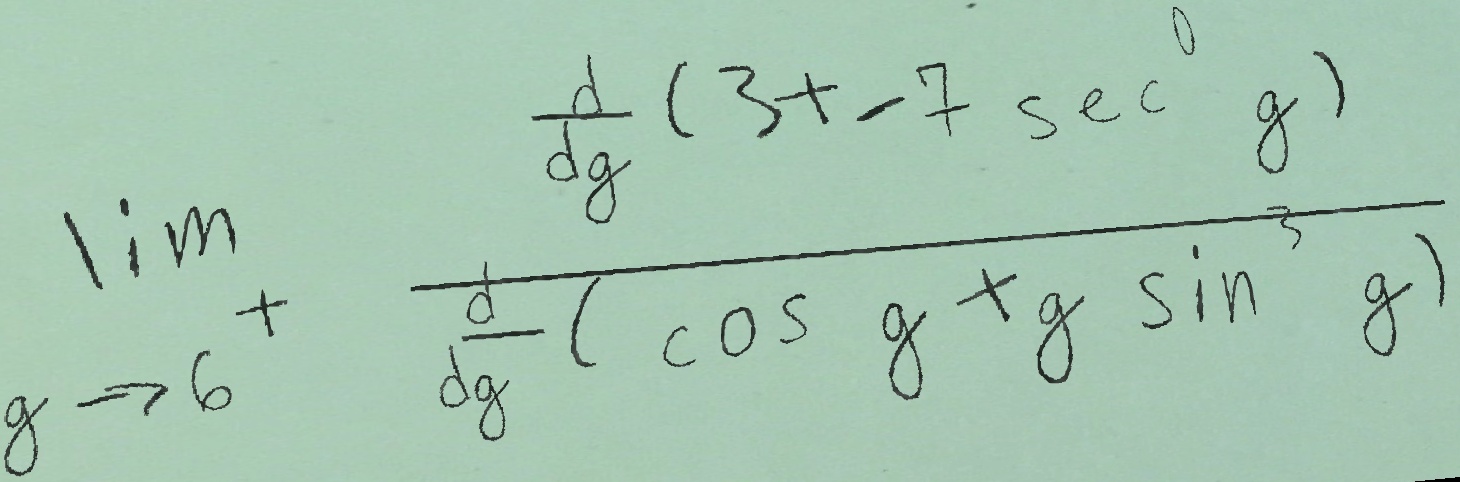 \lim_{g \to 6^+} \frac{\frac{d}{dg}(3 + -7 \sec^0 g)}{\frac{d}{dg}(\cos g + g \sin^3 g)}